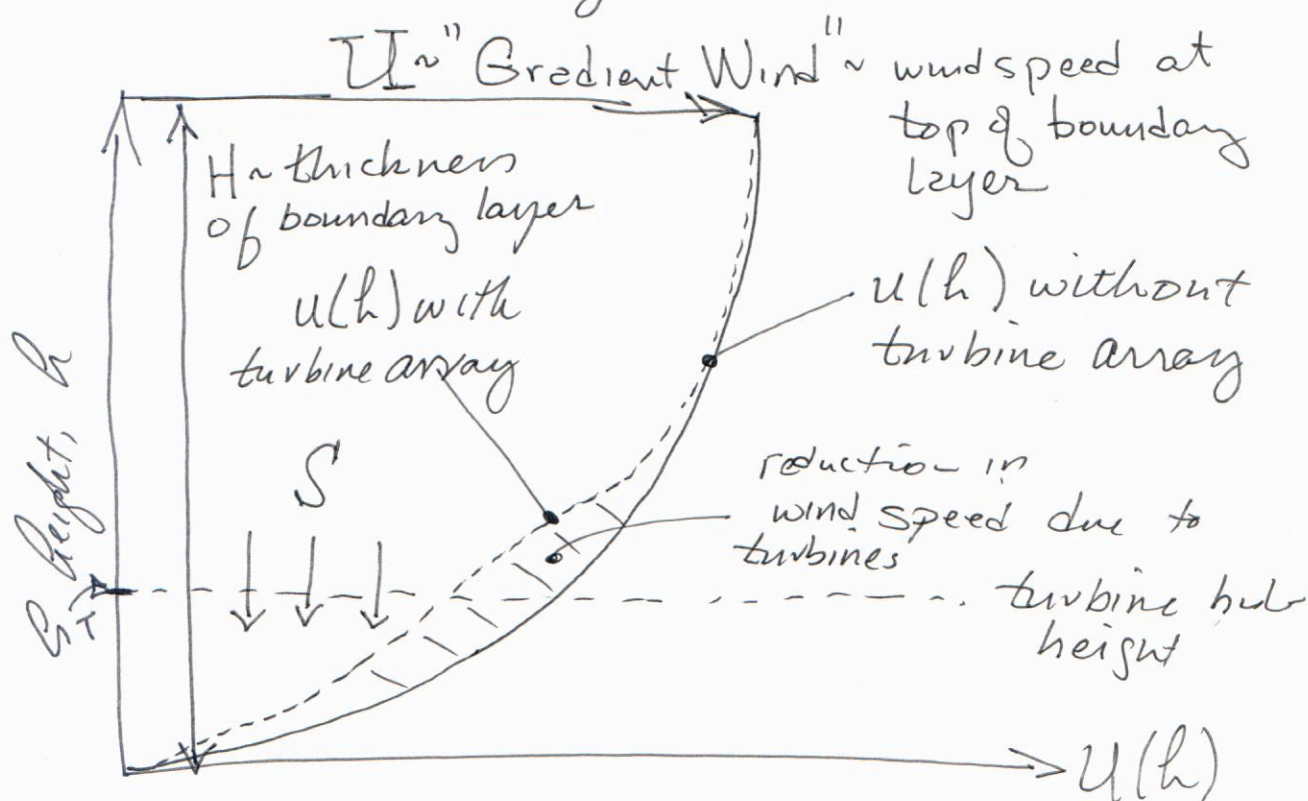 U ~ "Gradient Wind" ~ windspeed at
top of boundary
layer
H ~ thickness
of boundary layer
u(h) with
turbine array
u(h) without
turbine array
S
reduction in
wind speed due to
turbines
turbine hub
height
height, h
h_T
U(h)